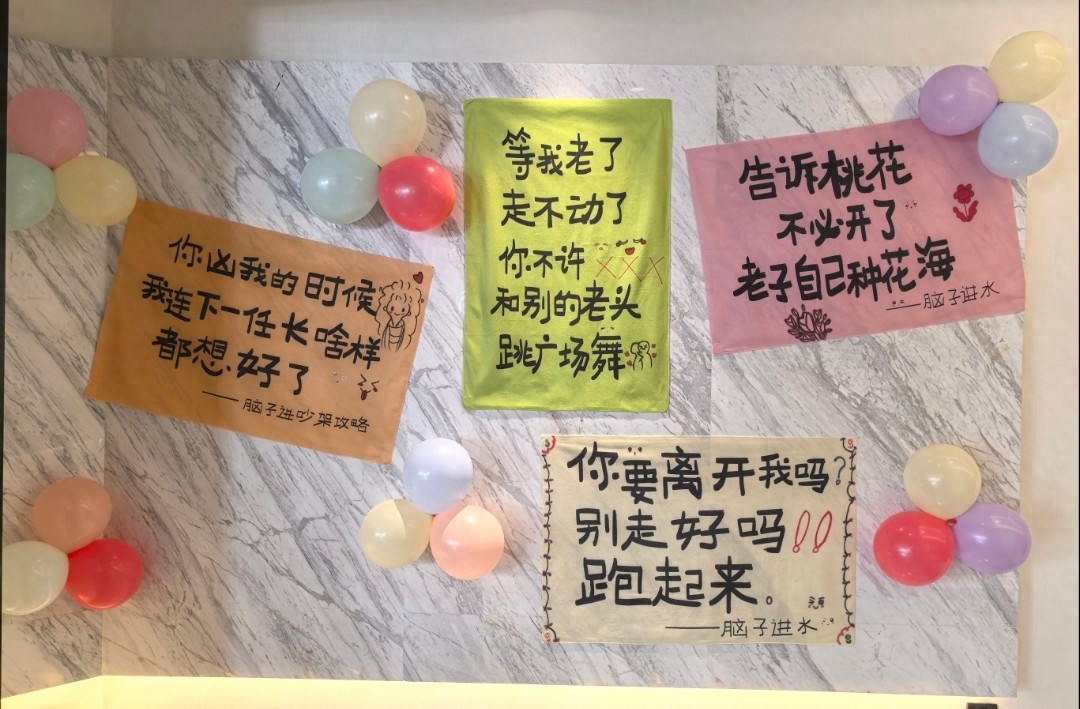 你凶我的时候
我连下一任长啥样
都想好了
——脑子进吵架攻略
等我老了
走不动了
你不许
和别的老头
跳广场舞
告诉桃花
不必开了
老子自己种花海
——脑子进水
你要离开我吗？
别走好吗！！
跑起来。
——脑子进水